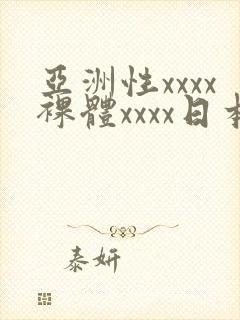 亞洲性xxxx
裸體xxxx日本
泰妍